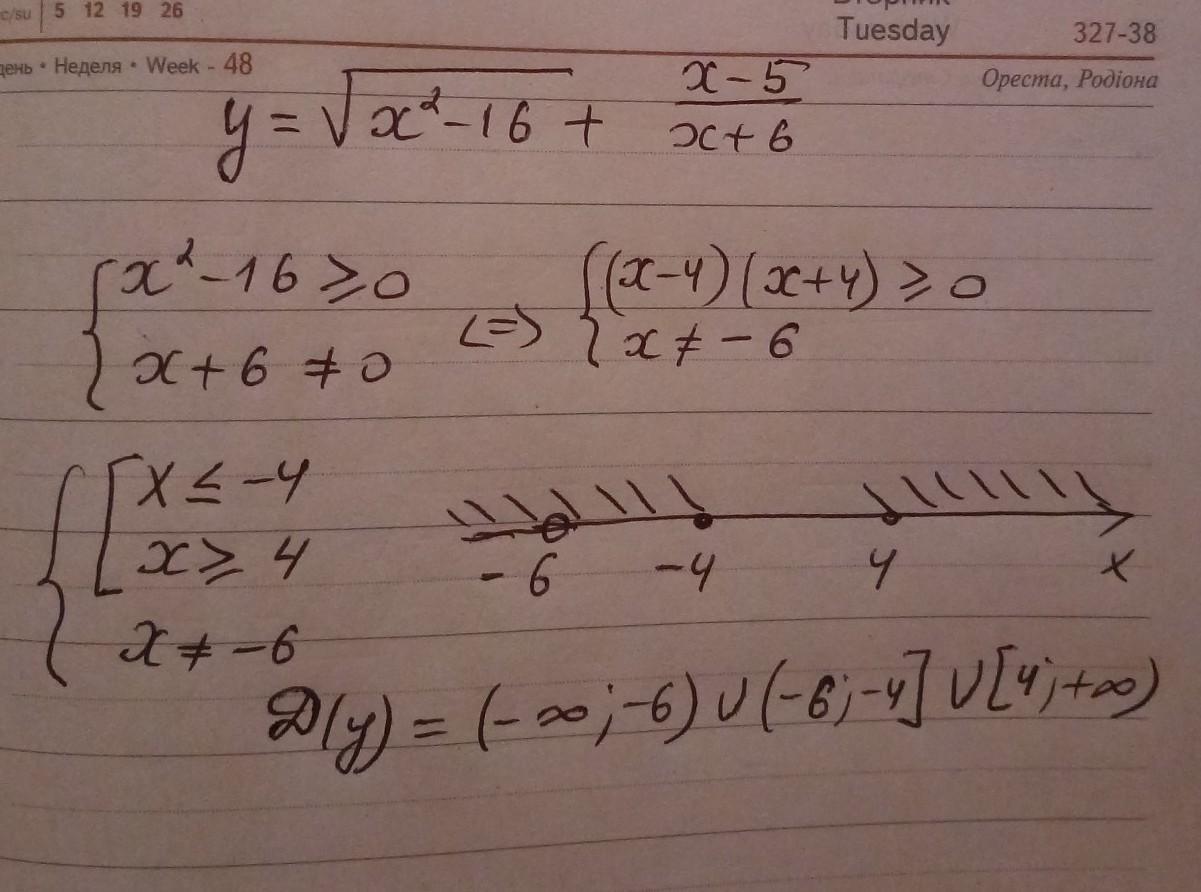 c/su 5 12 19 26
Tuesday 327-38
день • Неделя • Week - 48
Ореста, Родіона
y = √(x² - 16) + (x - 5)/(x + 6)
{ x² - 16 ≥ 0 <=> { (x - 4)(x + 4) ≥ 0
x + 6 ≠ 0 x ≠ - 6
{ [ x ≤ -4
x ≥ 4
-6 -4 4 x
x ≠ -6
D(y) = (-∞; -6) ∪ (-6; -4] ∪ [4; +∞)